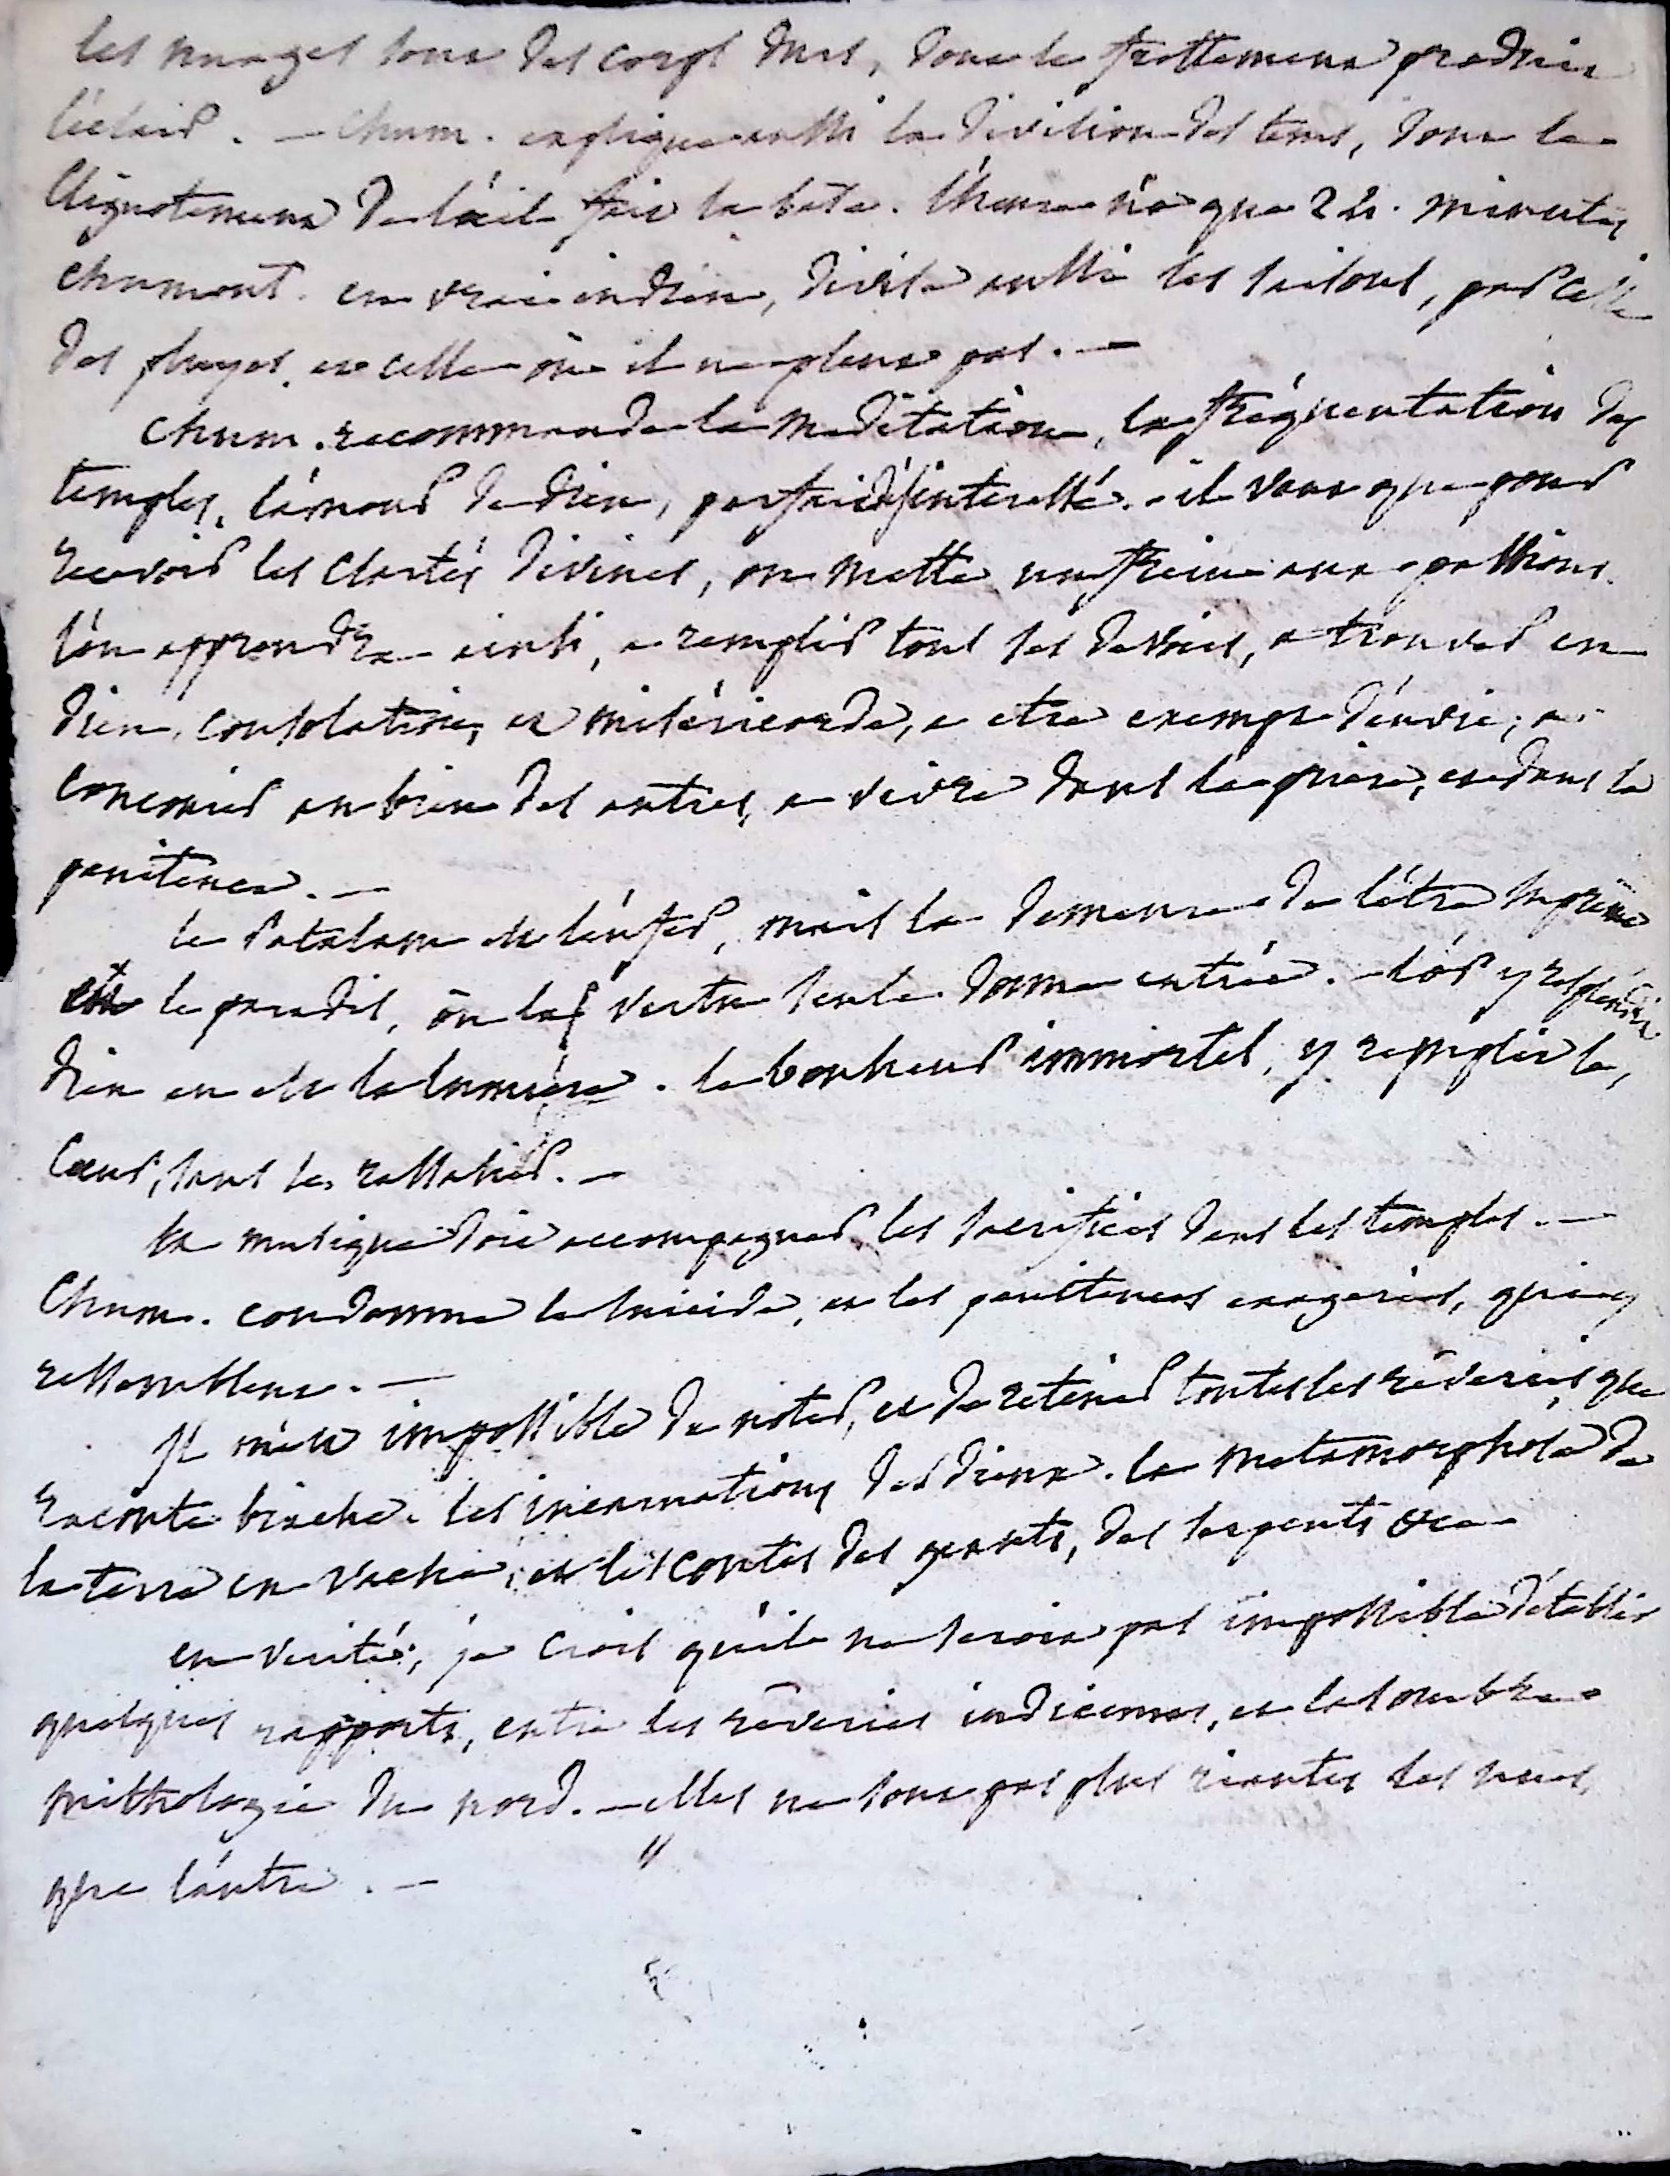 les nuages sont des corps durs, dont le frottement produit
l'éclair. — Chum. explique aussi la division des tems, dont le
Clignotement de l'œil fait la base. l'heure n'a que 24. minutes
chumont. en vrai indien, divise aussi les saisons, par celle
des pluyes, et celle où il ne pleut pas. —
Chum. recommande la méditation, la fréquentation des
temples, l'amour de dieu, parfait désinteressé. - il veut que pour
recevoir les clartés divines, on mette un frein aux passions.
l'on apprendra ainsi, a remplir tous ses devoirs, a trouver en
dieu, consolation, et miséricorde, a etre exempt d'envie, a
concourir au bien des autres, a vivre dans la prière, et dans la
penitence. —
le Patalam est l'enfer, mais la demeure de l'être suprême
est le paradis, où la vertu seule donne entrée. - l'or y resplendit
dieu en est la lumière. le bonheur immortel, y remplit le,
Cœur, sans le, rassasier. —
la musique doit accompagner les sacrifices dans les temples. —
Chum. condamne le suicide, et les penitences exagerées, qui y
ressemblent. —
Il m'est impossible de noter, et de retenir toutes les rêveries que
raconte biache. les incarnations des dieux. la metamorphose de
la terre en vache, et les contes des geants, des serpents &ca
en verité, je crois qu'il ne seroit pas impossible d'établir
quelques rapports, entre les rêveries indiennes, et la sombre
mithologie du nord. — elles ne sont pas plus riantes les unes,
que l'autre. — "